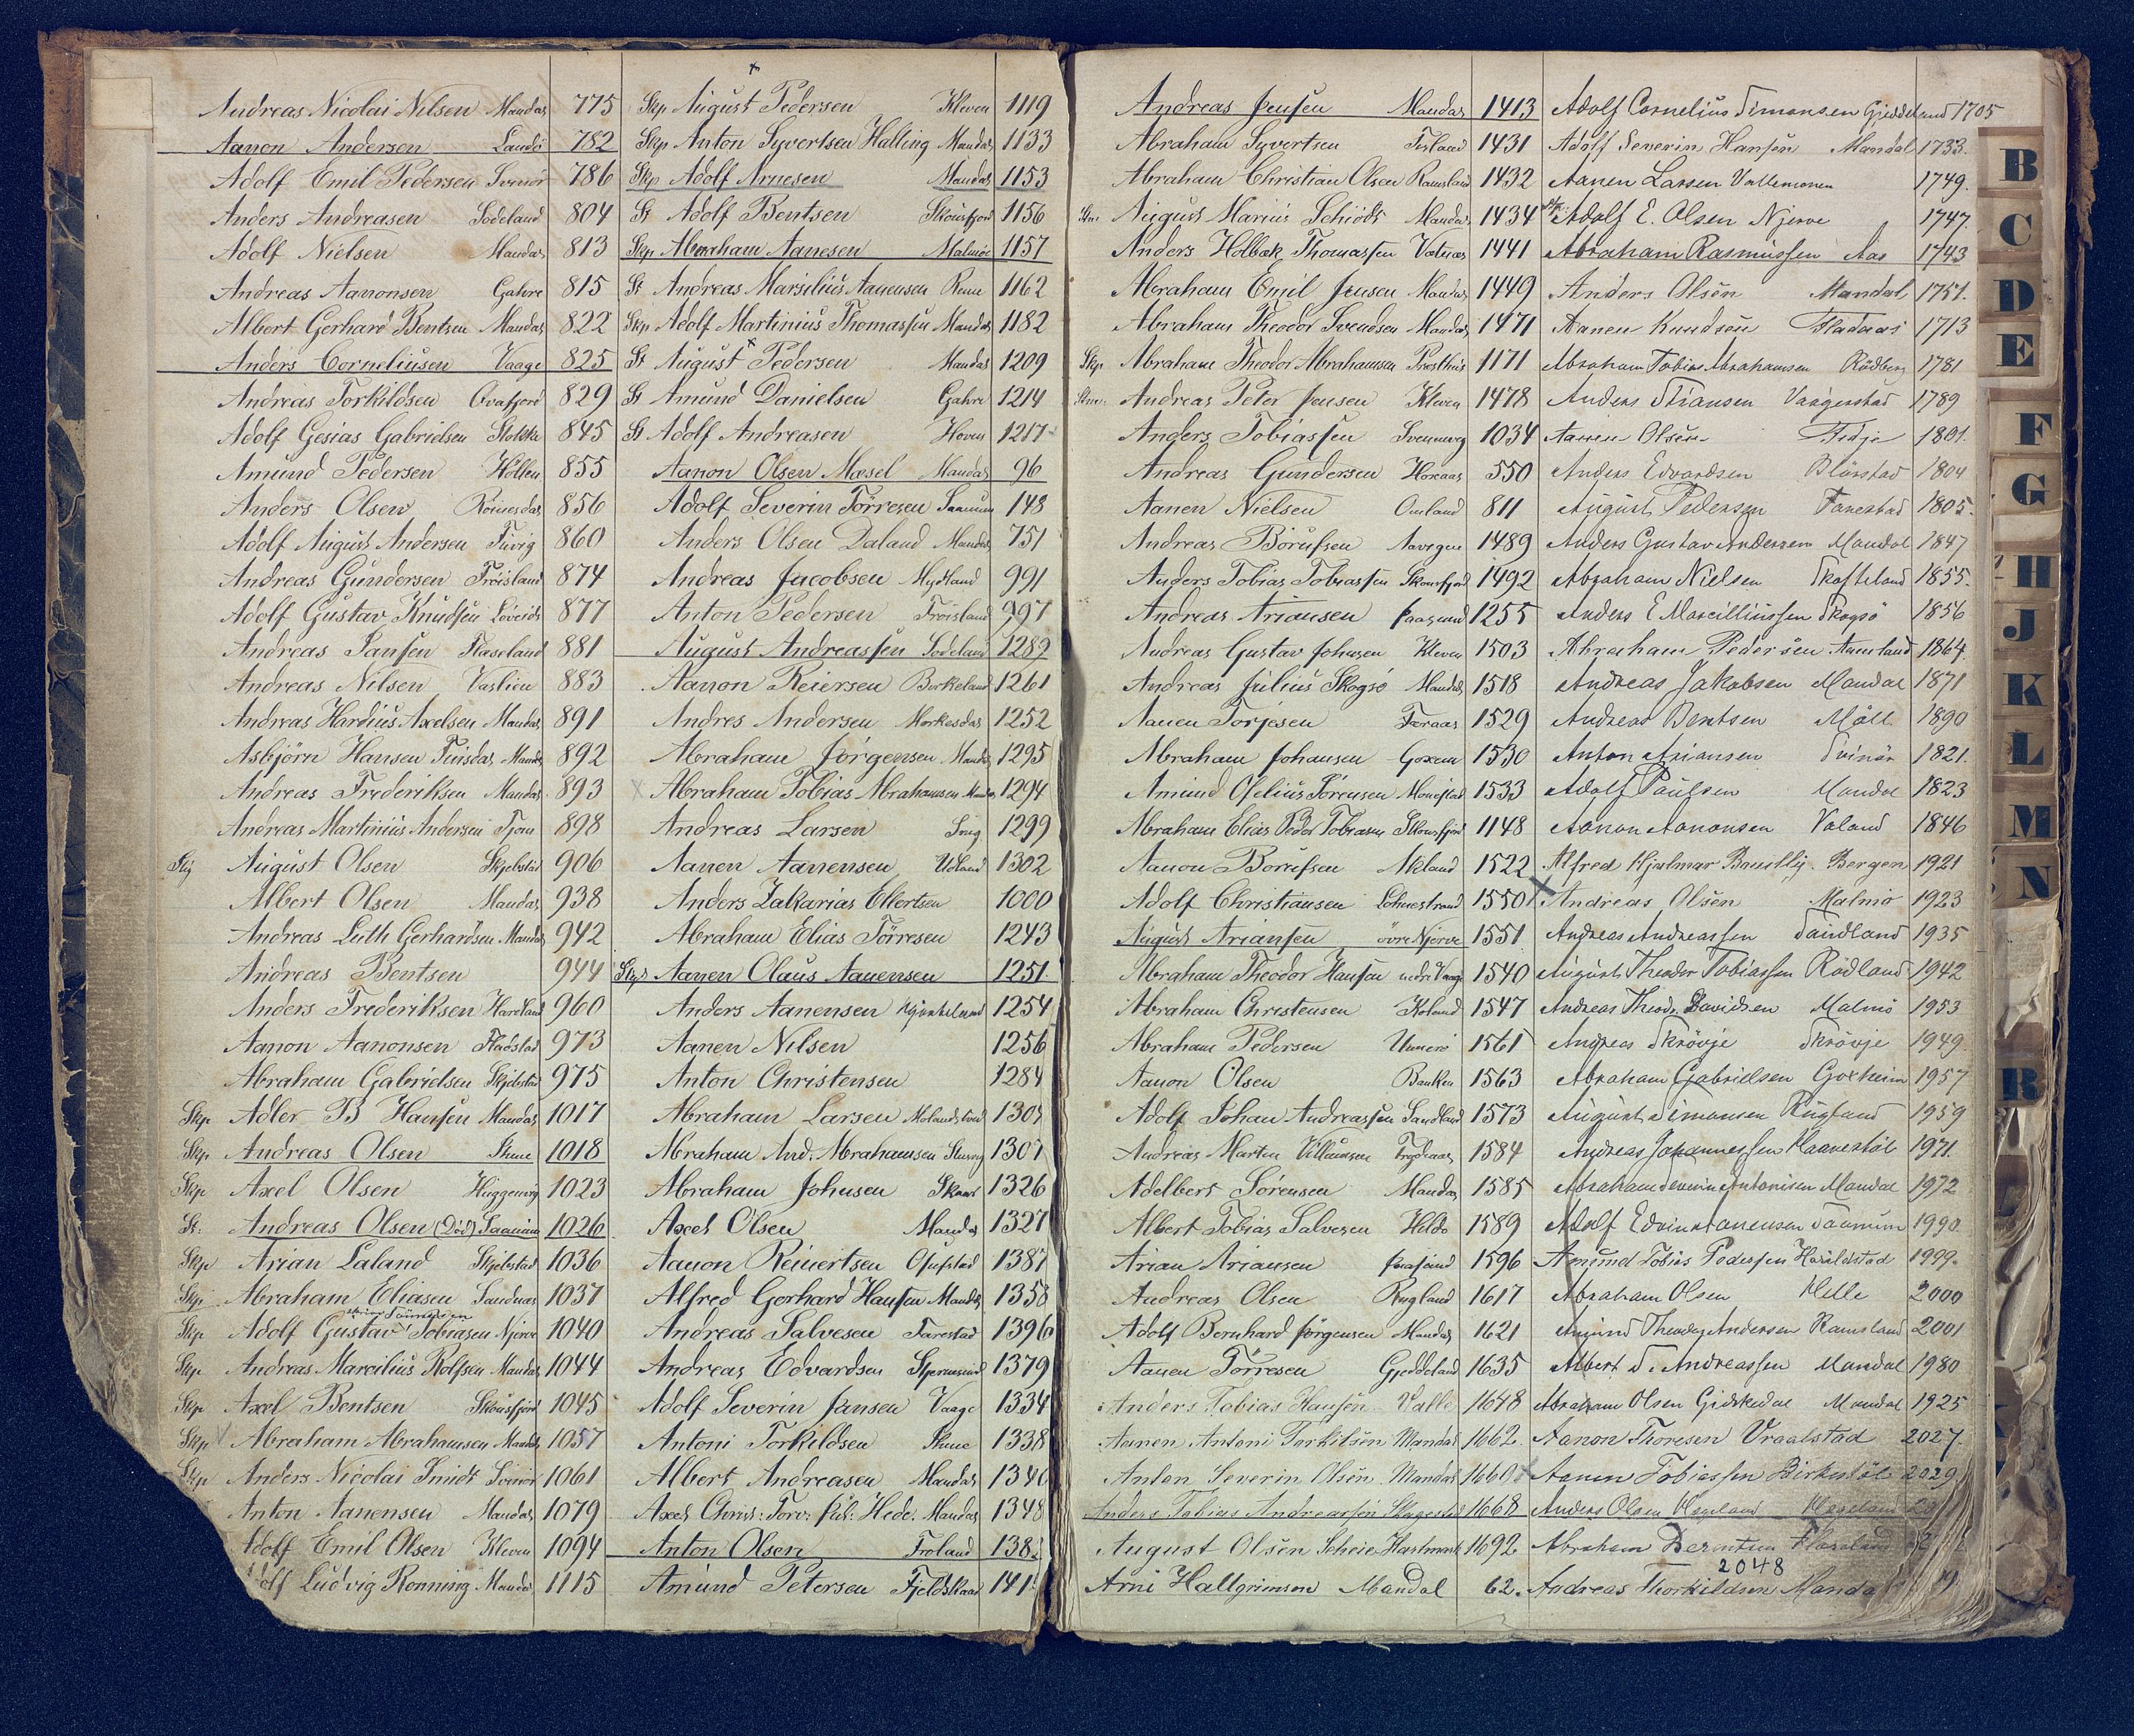 Andreas Nicolai Nilsen Mandal 775
Aanon Andersen Landö 782
Adolf Emil Pedersen Svinör 786
Anders Andreasen Sodeland 804
Adolf Nielsen Mandal 813
Andreas Aanonsen Gahre 815
Albert Gerhard Bentsen Mandal 822
Anders Corneliusen Vaage 825
Andreas Torkildsen 829
Adolf Gesias Gabrielsen 845
Amund Pedersen Holben 855
Anders Olsen 856
Adolf August Andersen Tuvig 860
Andreas Gundersen Tröisland 874
Adolf Gustav Knudsen 877
Andreas Jansen Haseland 881
Andreas Nilsen 883
Andreas Hardius Axelsen Mandal 891
Asbjörn Hansen Mandal 892
Andreas Frederiksen Mandal 893
Andreas Martinius Andersen 898
August Olsen Skjebstad 906
Albert Olsen Mandal 938
Andreas Luth Gerhardsen Mandal 942
Andreas Bentsen 944
Anders Frederiksen 960
Aanon Aanonsen Fladstad 973
Abraham Gabrielsen Skjebstad 975
Skp Adler B Hansen Mandal 1017
Skp Andreas Olsen 1018
Skp Axel Olsen 1023
St. Andreas Olsen (Död) Saanum 1026
Skp Arian Laland Skjebstad 1036
Skp Abraham Eliasen Sandnæs 1037
Skp Adolf Gustav Tobiasen Njerve 1040
Skp Andreas Marcilius Rolfsen Mandal 1044
Skp Axel Bentsen 1045
Skp Abraham Abrahamsen Mandal 1057
Skp Anders Nicolai Smidt Svinör 1061
Anton Aanensen Mandal 1079
Adolf Emil Olsen Kleven 1094
Ludvig Ronning Mandal 1115
Skp August Pedersen Kleven 1119
Skp Anton Syvertsen Halling Mandal 1133
Skp Adolf Arnesen Mandal 1153
St Adolf Bentsen 1156
Skp Abraham Aanesen Malmö 1157
St Andreas Marsilius Aanensen 1162
Skp Adolf Martinius Thomassen Mandal 1182
St August Pedersen Mandal 1209
St Amund Danielsen Gahre 1214
St Adolf Andreasen 1217
Aanon Olsen Mæsel Mandal 96
Adolf Severin Törresen Saanum 148
Anders Olsen Daland Mandal 751
Andreas Jacobsen Mydland 991
Anton Pedersen Tröisland 997
August Andreassen Sodeland 1289
Aanon Reiersen Birkeland 1261
Andres Andersen 1252
Abraham Jörgensen Mandal 1295
Abraham Tobias Abrahamsen Mandal 1294
Andreas Larsen 1299
Aanen Aanensen 1302
Anders Zakarias Ellertsen 1000
Abraham Elias Törresen 1243
Skp Aanen Olaus Aanensen 1251
Anders Aanensen 1254
Aanen Nilsen 1256
Anton Christensen 1284
Abraham Larsen
Abraham And. Abrahamsen 1307
Abraham Johnsen 1326
Axel Olsen Mandal 1327
Aanon Reinertsen 1387
Alfred Gerhard Hansen Mandal 1358
Andreas Salvesen Tarestad 1396
Andreas Edvardsen 1379
Adolf Severin Jansen Vaage 1334
Antoni Torkildsen 1338
Albert Andreasen Mandal 1340
Axel Christ: Mandal 1348
Anton Olsen Froland
Amund Petersen
Andreas Jensen Mandal 1413
Abraham Syvertsen 1431
Abraham Christian Olsen Ramsland 1432
August Marius Schiödt Mandal 1434
Anders Holbæk Thomassen 1441
Abraham Emil Jensen Mandal 1449
Abraham Theodor Svendsen Mandal 1471
Skp Abraham Theodor Abrahamsen 1171
Andreas Peter Jensen Kleven 1478
Anders Tobiassen 1034
Andreas Gundersen 550
Aanen Nielsen 811
Andreas Börufsen 1489
Anders Tobias Tobiassen 1492
Andreas Ariansen 1255
Andreas Gustav Johnsen Kleven 1503
Andreas Julius Skogsö Mandal 1518
Aanen Torjesen 1529
Abraham Johansen 1530
Amund Ofelius Sörensen 1533
Abraham Elias Peder Tobiasen 1148
Aanon Börufsen 1522
Adolf Christiansen 1550
August Ariansen övre Njerve 1551
Abraham Theodor Hansen 1540
Abraham Christensen 1547
Abraham Pedersen 1561
Aanon Olsen 1563
Adolf Johan Andreassen Sandland 1573
Andreas Martin Villumsen 1584
Adelbert Sörensen Mandal 1585
Albert Tobias Salvesen 1589
Arian Ariansen 1596
Andreas Olsen Rugland 1617
Adolf Bernhard Jörgensen Mandal 1621
Aanen Törresen Gjeddeland 1635
Anders Tobias Hansen Valle 1648
Aanen Antoni Torkilsen Mandal 1662
Anton Severin Olsen Mandal 1660
Anders Tobias Andreassen 1668
August Olsen Scheie 1692
Arni Hallgrimson Mandal 62.
Adolf Cornelius Simonsen Gjeddeland 1705
Adolf Severin Hansen Mandal 1733.
Aanen Larsen Vallemonen 1749.
Adolf E. Olsen Njerve 1747.
Abraham Rasmussen Aas 1743
Anders Olsen Mandal 1751.
Aanen Knudsen 1713
Abraham Tobias Abrahamsen Rödberg 1781
Anders 1789
Aanen Olsen 1801.
Anders Edvardsen 1804
August Pedersen Tanestad 1805.
Anders Gustav Andersen Mandal 1847
Abraham Nielsen Skofteland 1855.
Anders E Marcilliussen Skogsö 1856
Abraham Pedersen 1864.
Andreas Jakobsen Mandal 1871
Andreas Bentsen Möll 1890
Anton Ariansen Svinör 1821.
Adolf Paulsen Mandal 1823
Aanon Aanonsen Valand 1846
Alfred Hjalmar Bergen 1921
Andreas Olsen Malmö 1923
Andreas Andreassen Sandland 1935
August Theodor Tobiassen Rödland 1942
Andreas Theodr. Davidsen Malmö 1953
Andreas Skrövje Skrövje 1949
Abraham Gabrielsen Goxheim 1957
August Simonsen Rugland 1959
Andreas Johannessen 1971.
Abraham Severin Antonisen Mandal 1972
Adolf Edvin Aanensen Saanum 1990
Amund Tobias Pedersen 1999.
Abraham Olsen Helle 2000
Amund Theodor Andersen Ramsland 2001
Albert S. Andreassen Mandal 1980
Abraham Olsen Gidskedal Mandal 1925
Aanon Thoresen Vraalstad 2027.
Aanen Tobiassen 2029
Anders Olsen Hegeland Hegeland
Abraham Berntsen
2048
Andreas Thorkildsen Mandal
B
C
D
E
F
G
H
J
K
L
M
N
R